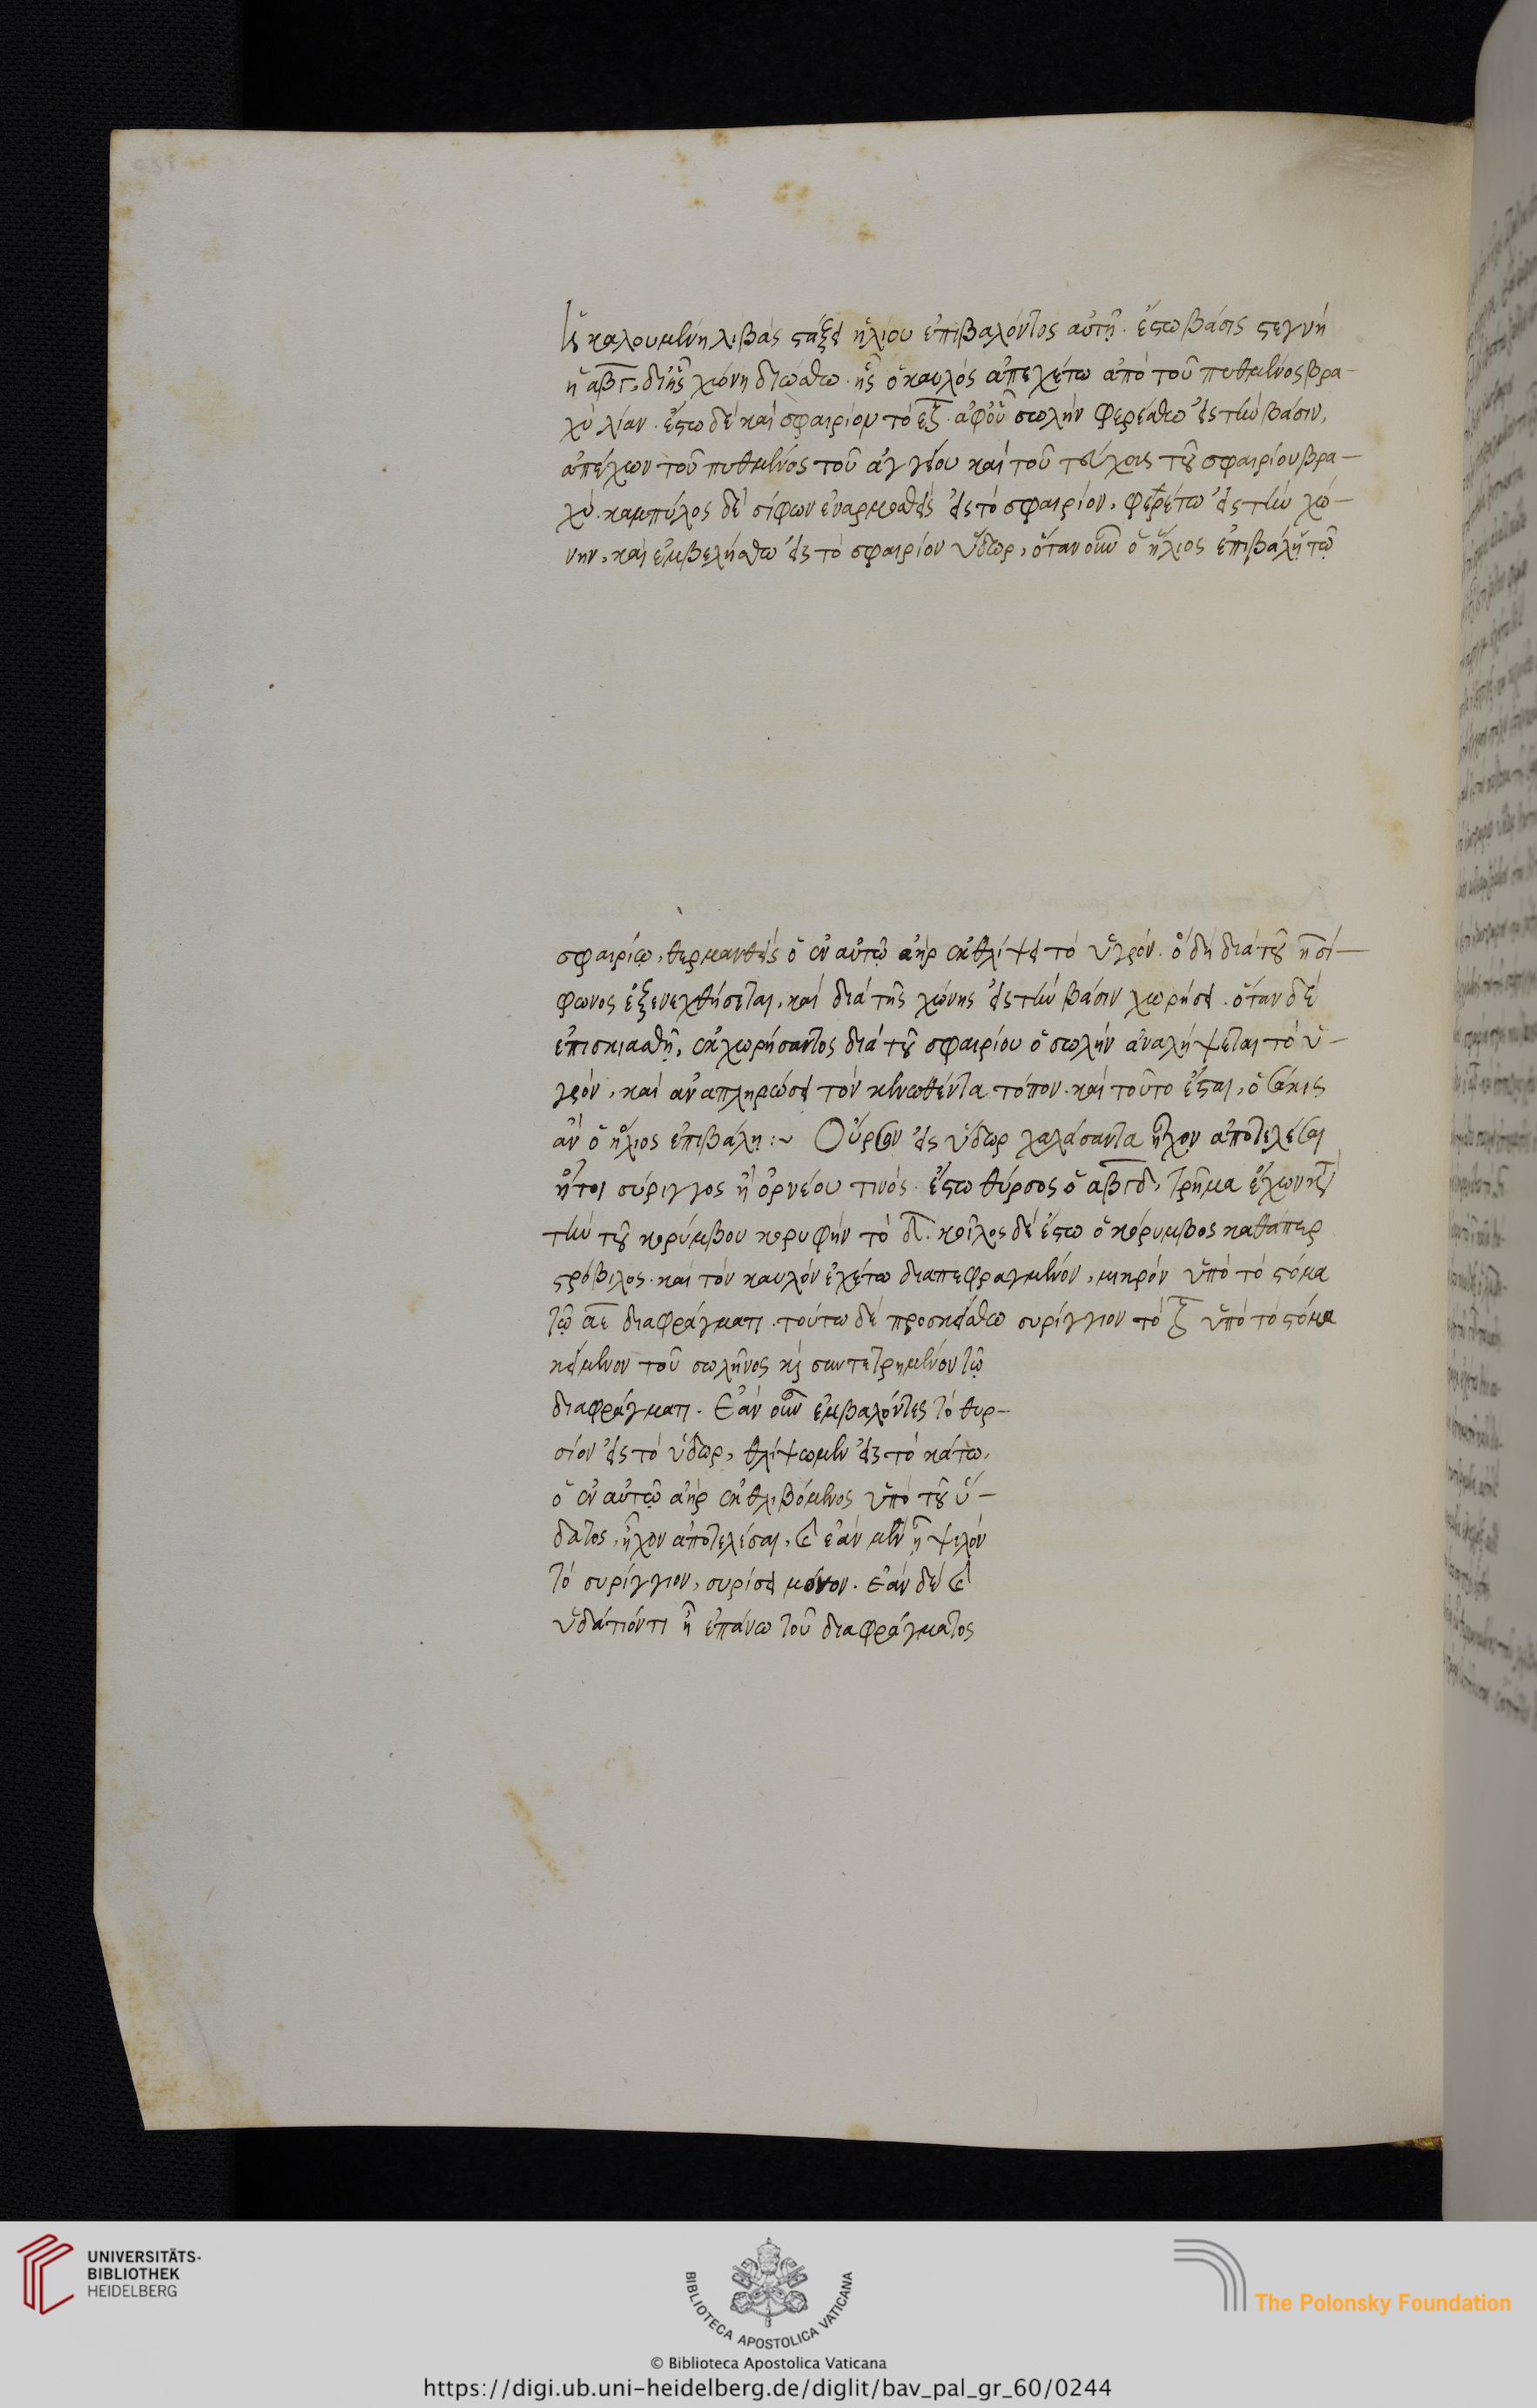 Ἡ καλουμένη λιβὰς στάξει ἡλίου ἐπιβαλόντος αὐτῇ. ἔστω βάσις στεγνὴ
ἡ αβγ, δι' ἧς χώνη διώσθω. ἧς ὁ καυλὸς ἀπεχέτω ἀπὸ τοῦ πυθμένος βρα-
χὺ λίαν. ἔστω δὲ καὶ σφαιρίον τὸ εζ. ἀφ' οὗ σωλὴν φερέσθω εἰς τὴν βάσιν,
ἀπέχων τοῦ πυθμένος τοῦ ἀγγείου καὶ τοῦ τεύχους τοῦ σφαιρίου βρα-
χύ. καμπύλος δὲ σίφων ἐναρμοσθεὶς εἰς τὸ σφαιρίον, φερέτω εἰς τὴν χώ-
νην, καὶ ἐμβεβλήσθω εἰς τὸ σφαιρίον ὕδωρ, ὅταν οὖν ὁ ἥλιος ἐπιβάλῃ τῷ
σφαιρίῳ, θερμανθεὶς ὁ ἐν αὐτῷ ἀὴρ ἐκθλίψει τὸ ὑγρόν. ὃ δὴ διὰ τοῦ η σί-
φωνος ἐξενεχθήσεται, καὶ διὰ τῆς χώνης εἰς τὴν βάσιν χωρήσει. ὅταν δὲ
ἐπισκιασθῇ, ἐκχωρήσαντος διὰ τοῦ σφαιρίου ὁ σωλὴν ἀναλήψεται τὸ ὑ-
γρόν, καὶ ἀναπληρώσει τὸν κενωθέντα τόπον. καὶ τοῦτο ἔσται, ὁσάκις
ἂν ὁ ἥλιος ἐπιβάλῃ :~ Θύρσον εἰς ὕδωρ χαλάσαντα ἦχον ἀποτελέσαι
ἤτοι σύριγγος ἢ ὀρνέου τινός. ἔστω θύρσος ὁ αβγδ, τρῆμα ἔχων κατὰ
τὴν τοῦ κορύμβου κορυφὴν τὸ δ. κοῖλος δὲ ἔστω ὁ κόρυμβος καθάπερ
στρόβιλος. καὶ τὸν καυλὸν ἐχέτω διαπεφραγμένον, μικρὸν ὑπὸ τὸ στόμα
τῷ αε διαφράγματι. τούτω δὲ προσκείσθω συρίγγιον τὸ ζ ὑπὸ τὸ στόμα
κείμενον τοῦ σωλῆνος καὶ συντετρημένον τῷ
διαφράγματι. Ἐὰν οὖν ἐμβαλόντες τὸ θυρ-
σίον εἰς τὸ ὕδωρ, θλίψωμεν εἰς τὸ κάτω,
ὁ ἐν αὐτῷ ἀὴρ ἐκθλιβόμενος ὑπὸ τοῦ ὕ-
δατος, ἦχον ἀποτελέσαι, καὶ ἐὰν μὲν ᾖ ψιλὸν
τὸ συρίγγιον, συρίσει μόνον. ἐὰν δὲ καὶ
ὑδάτιόν τι ᾖ ἐπάνω τοῦ διαφράγματος
UNIVERSITÄTS-
BIBLIOTHEK
HEIDELBERG
BIBLIOTECA APOSTOLICA VATICANA
The Polonsky Foundation
© Biblioteca Apostolica Vaticana
https://digi.ub.uni-heidelberg.de/diglit/bav_pal_gr_60/0244